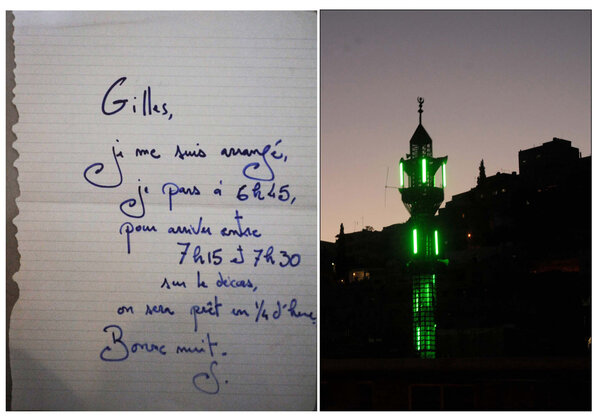 Gilles,
je me suis arrangé,
je pars à 6h45,
pour arriver entre
7h15 et 7h30
sur le décors,
on sera prêt en 1/4 d'heure,
Bonne nuit.
S.